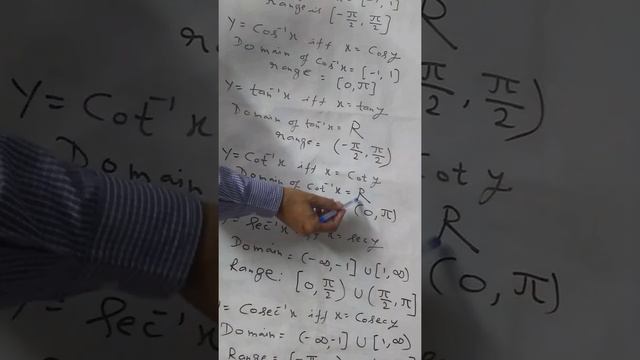 Range is [-π/2, π/2]
Y = Cos⁻¹x iff x = Cosy
Domain of Cos⁻¹x = [-1, 1]
range = [0, π]
Y = tan⁻¹x iff x = tany
Domain of tan⁻¹x = R
range = (-π/2, π/2)
Y = Cot⁻¹x iff x = Cot y
Domain of Cot⁻¹x = R
(0, π)
= Sec⁻¹x iff x = Secy
Domain = (-∞, -1] ∪ [1, ∞)
Range: [0, π/2) ∪ (π/2, π]
= Cosec⁻¹x iff x = Cosecy
Domain = (-∞, -1] ∪ [1, ∞)
Range = [-π